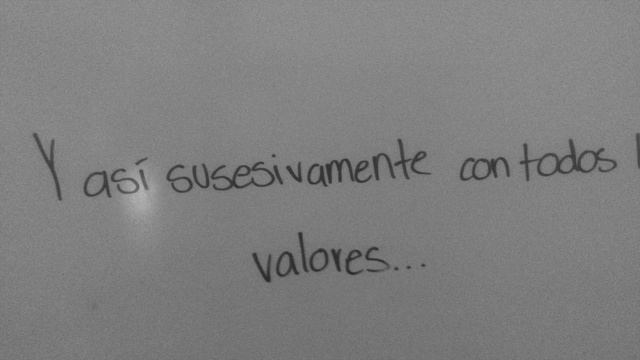 Y así susesivamente con todos
valores...